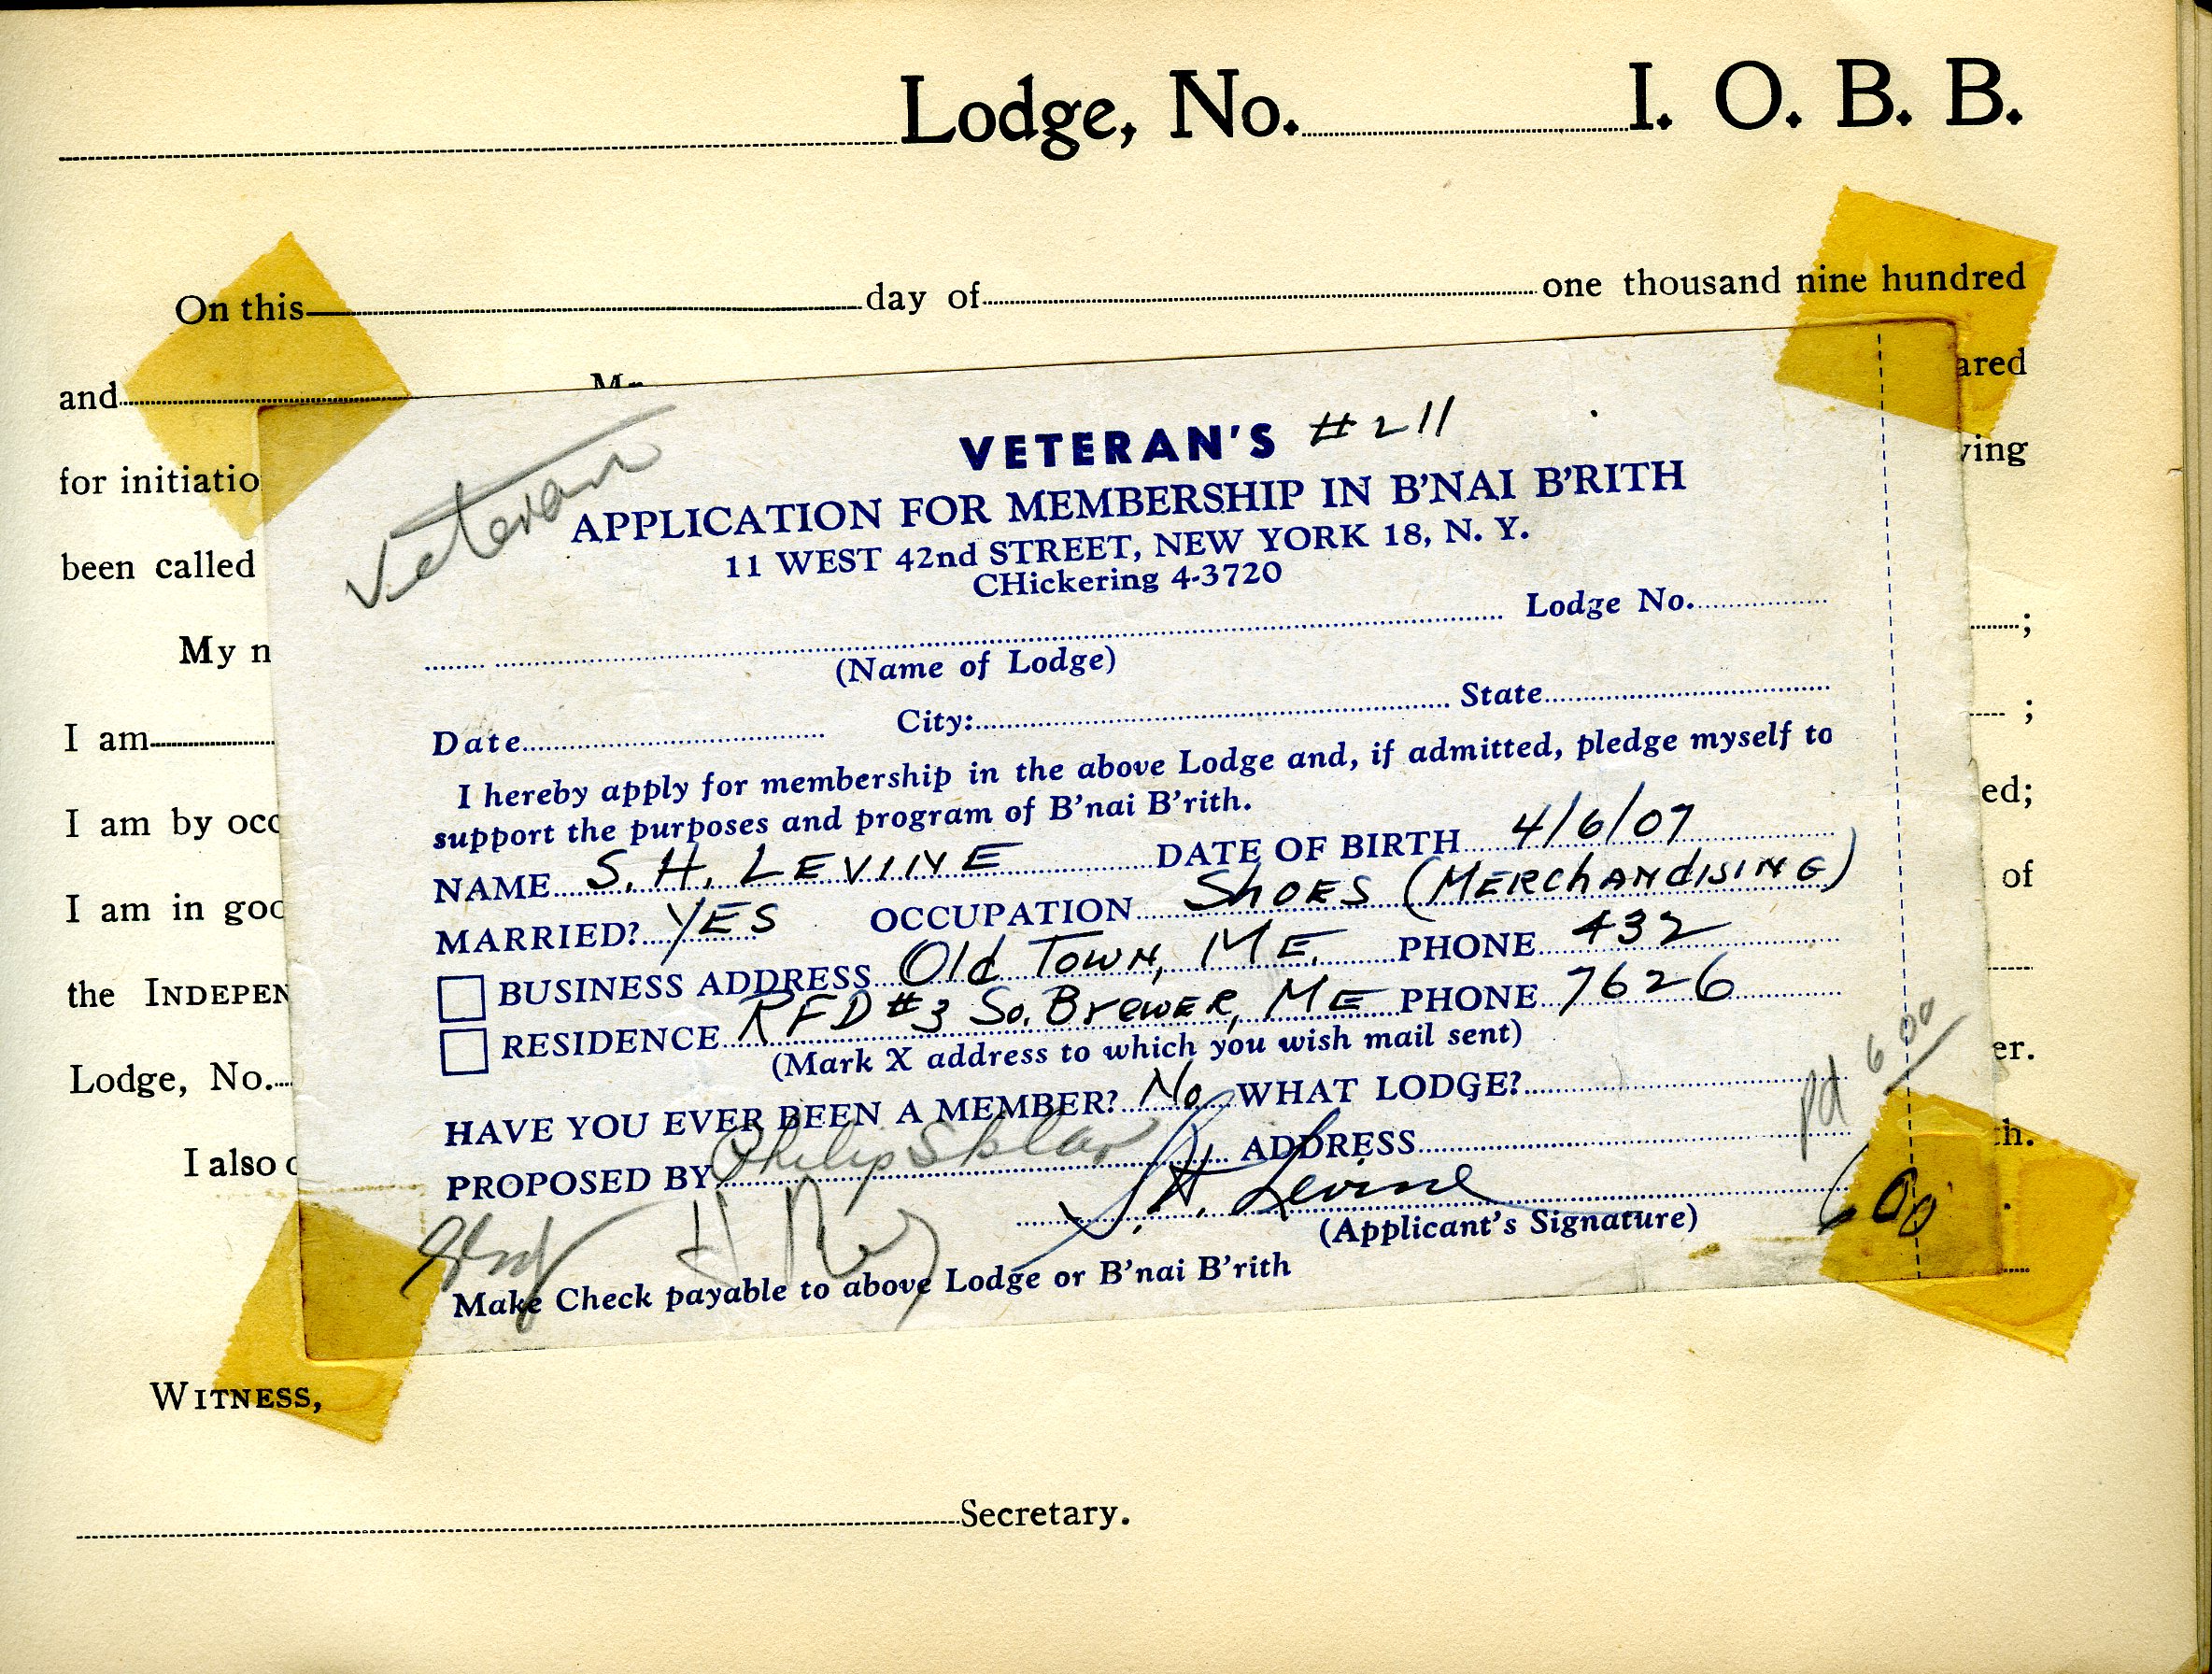 Lodge, No. I. O. B. B.
On this day of one thousand nine hundred
and Mr. ared
for initiatio ving
been called
My n ;
I am ;
I am by occ ed;
I am in goo of
the INDEPEN
Lodge, No. er.
I also d th.
WITNESS,
Secretary.
Veteran
VETERAN'S #211
APPLICATION FOR MEMBERSHIP IN B'NAI B'RITH
11 WEST 42nd STREET, NEW YORK 18, N. Y.
CHickering 4-3720
Lodge No.
(Name of Lodge)
Date City: State
I hereby apply for membership in the above Lodge and, if admitted, pledge myself to
support the purposes and program of B'nai B'rith.
NAME S. H. LEVINE DATE OF BIRTH 4/6/07
MARRIED? YES OCCUPATION SHOES (MERCHANDISING)
BUSINESS ADDRESS Old TOWN, ME. PHONE 432
RESIDENCE RFD #3 So. BREWER, ME PHONE 7626
(Mark X address to which you wish mail sent)
HAVE YOU EVER BEEN A MEMBER? No WHAT LODGE?
PROPOSED BY Philip Sklar ADDRESS
S. H. Levine
(Applicant's Signature)
Make Check payable to above Lodge or B'nai B'rith
pd 6 00
6 00